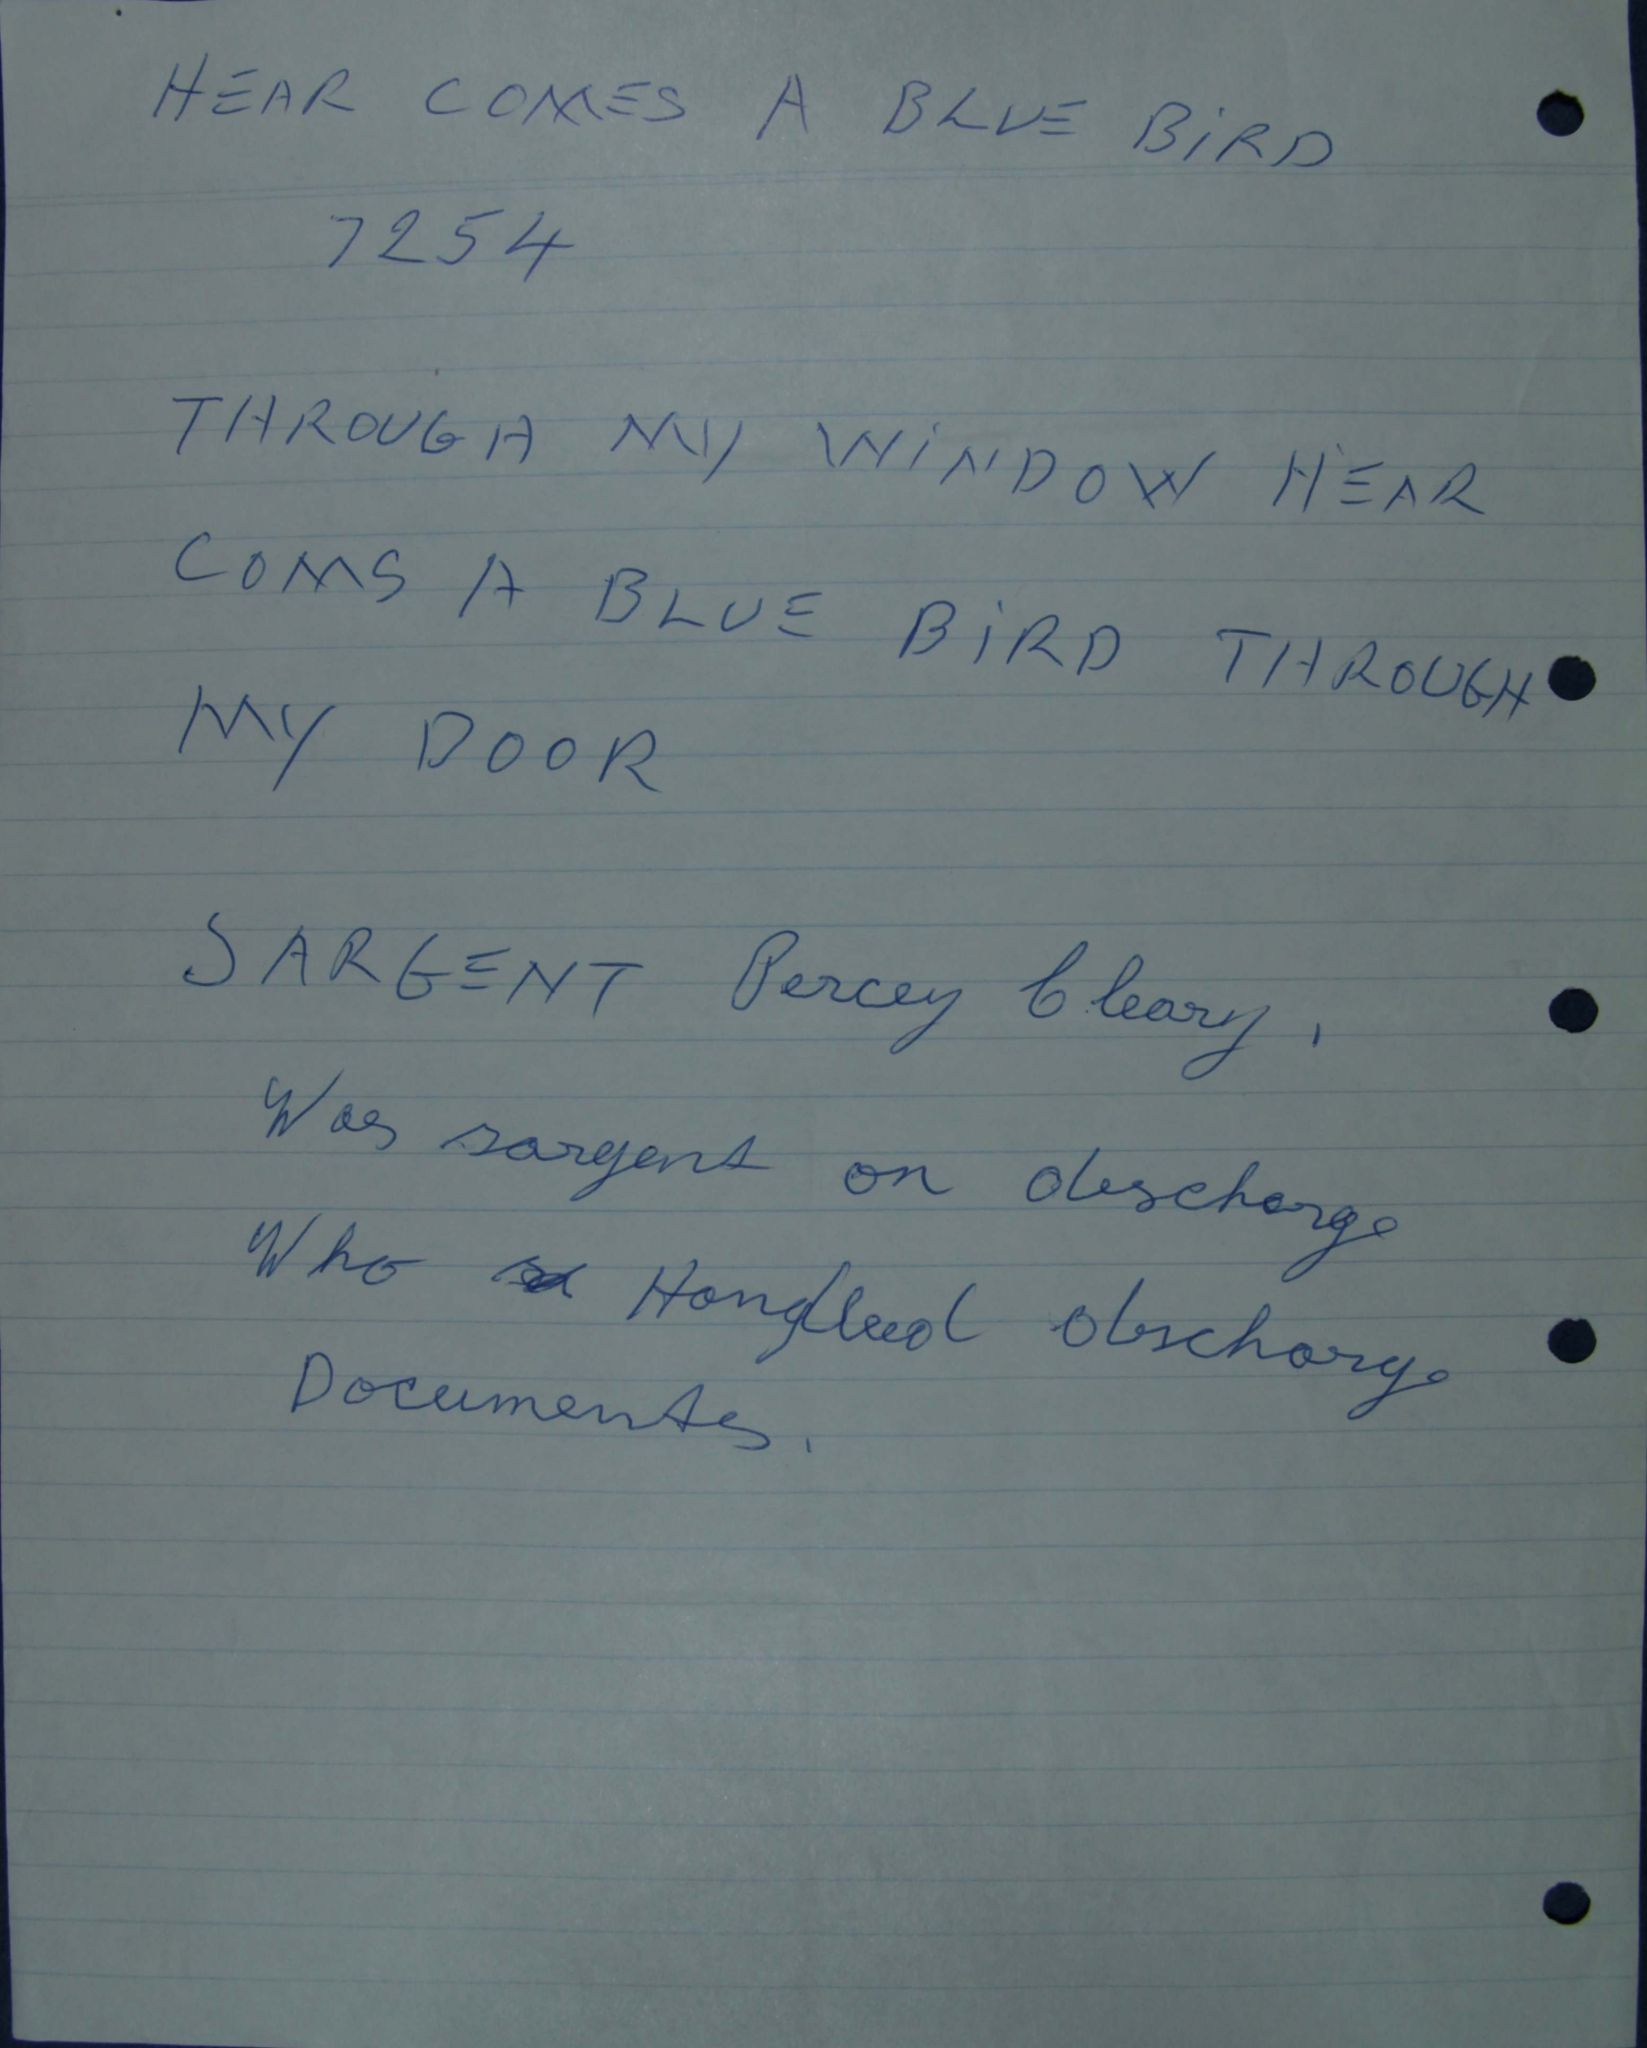 HEAR COMES A BLUE BiRD
7254
THROUGH MY WiNDOW HEAR
COMS A BLUE BiRD THROUGH
MY DOOR
SARGENT Percey Cleary,
Was sargent on discharge
Who Handleed discharge
Documents.